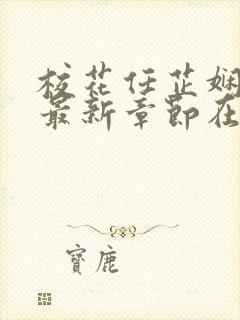 校花任芷娴
最新章节在
寶鹿